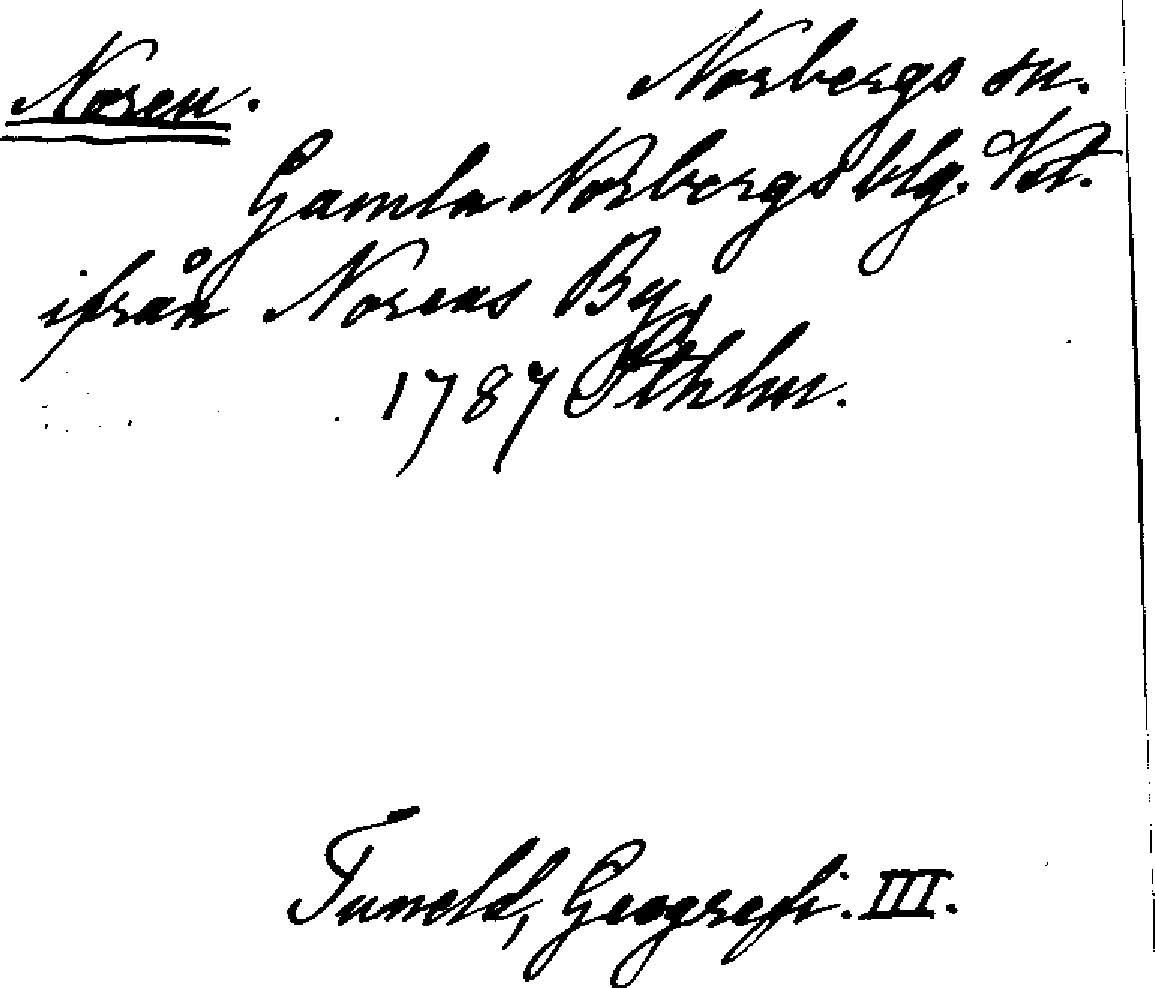 Noren. Norbergs sn.
Gamla Norbergs blg. Vst.
ifrån Norens By,
1787 Sthlm.
Tuneld, Geografi. III.